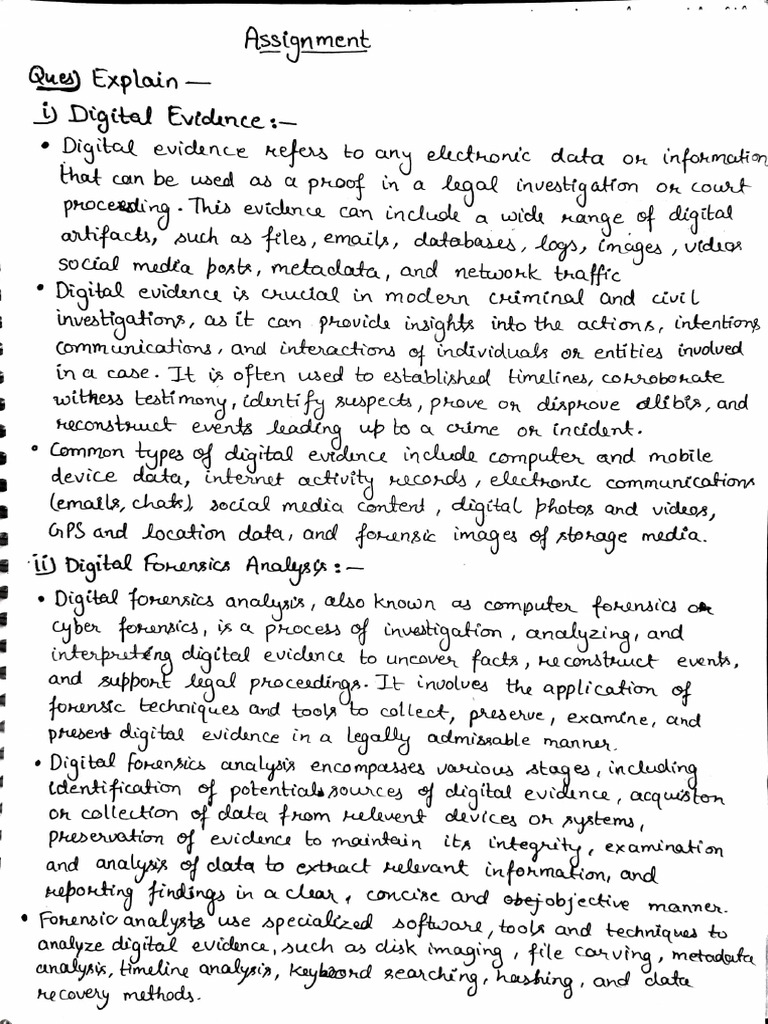 Assignment
Ques) Explain —
i) Digital Evidence :—
• Digital evidence refers to any electronic data or information
that can be used as a proof in a legal investigation or court
proceeding. This evidence can include a wide range of digital
artifacts, such as files, emails, databases, logs, images, videos
social media posts, metadata, and network traffic
• Digital evidence is crucial in modern criminal and civil
investigations, as it can provide insights into the actions, intentions
communications, and interactions of individuals or entities involved
in a case. It is often used to established timelines, corroborate
witness testimony, identify suspects, prove or disprove alibis, and
reconstruct events leading up to a crime or incident.
• Common types of digital evidence include computer and mobile
device data, internet activity records, electronic communications
(emails, chats), social media content, digital photos and videos,
GPS and location data, and forensic images of storage media.
ii) Digital Forensics Analysis :—
• Digital forensics analysis, also known as computer forensics or
cyber forensics, is a process of investigation, analyzing, and
interpreting digital evidence to uncover facts, reconstruct events,
and support legal proceedings. It involves the application of
forensic techniques and tools to collect, preserve, examine, and
present digital evidence in a legally admissable manner.
• Digital forensics analysis encompasses various stages, including
identification of potential sources of digital evidence, acquiston
or collection of data from relevent devices or systems,
preservation of evidence to maintain its integrity, examination
and analysis of data to extract relevant information, and
reporting findings in a clear, concise and objective manner.
• Forensic analysts use specialized software, tools and techniques to
analyze digital evidence, such as disk imaging, file carving, metadata
analysis, timeline analysis, keyword searching, hashing, and data
recovery methods.